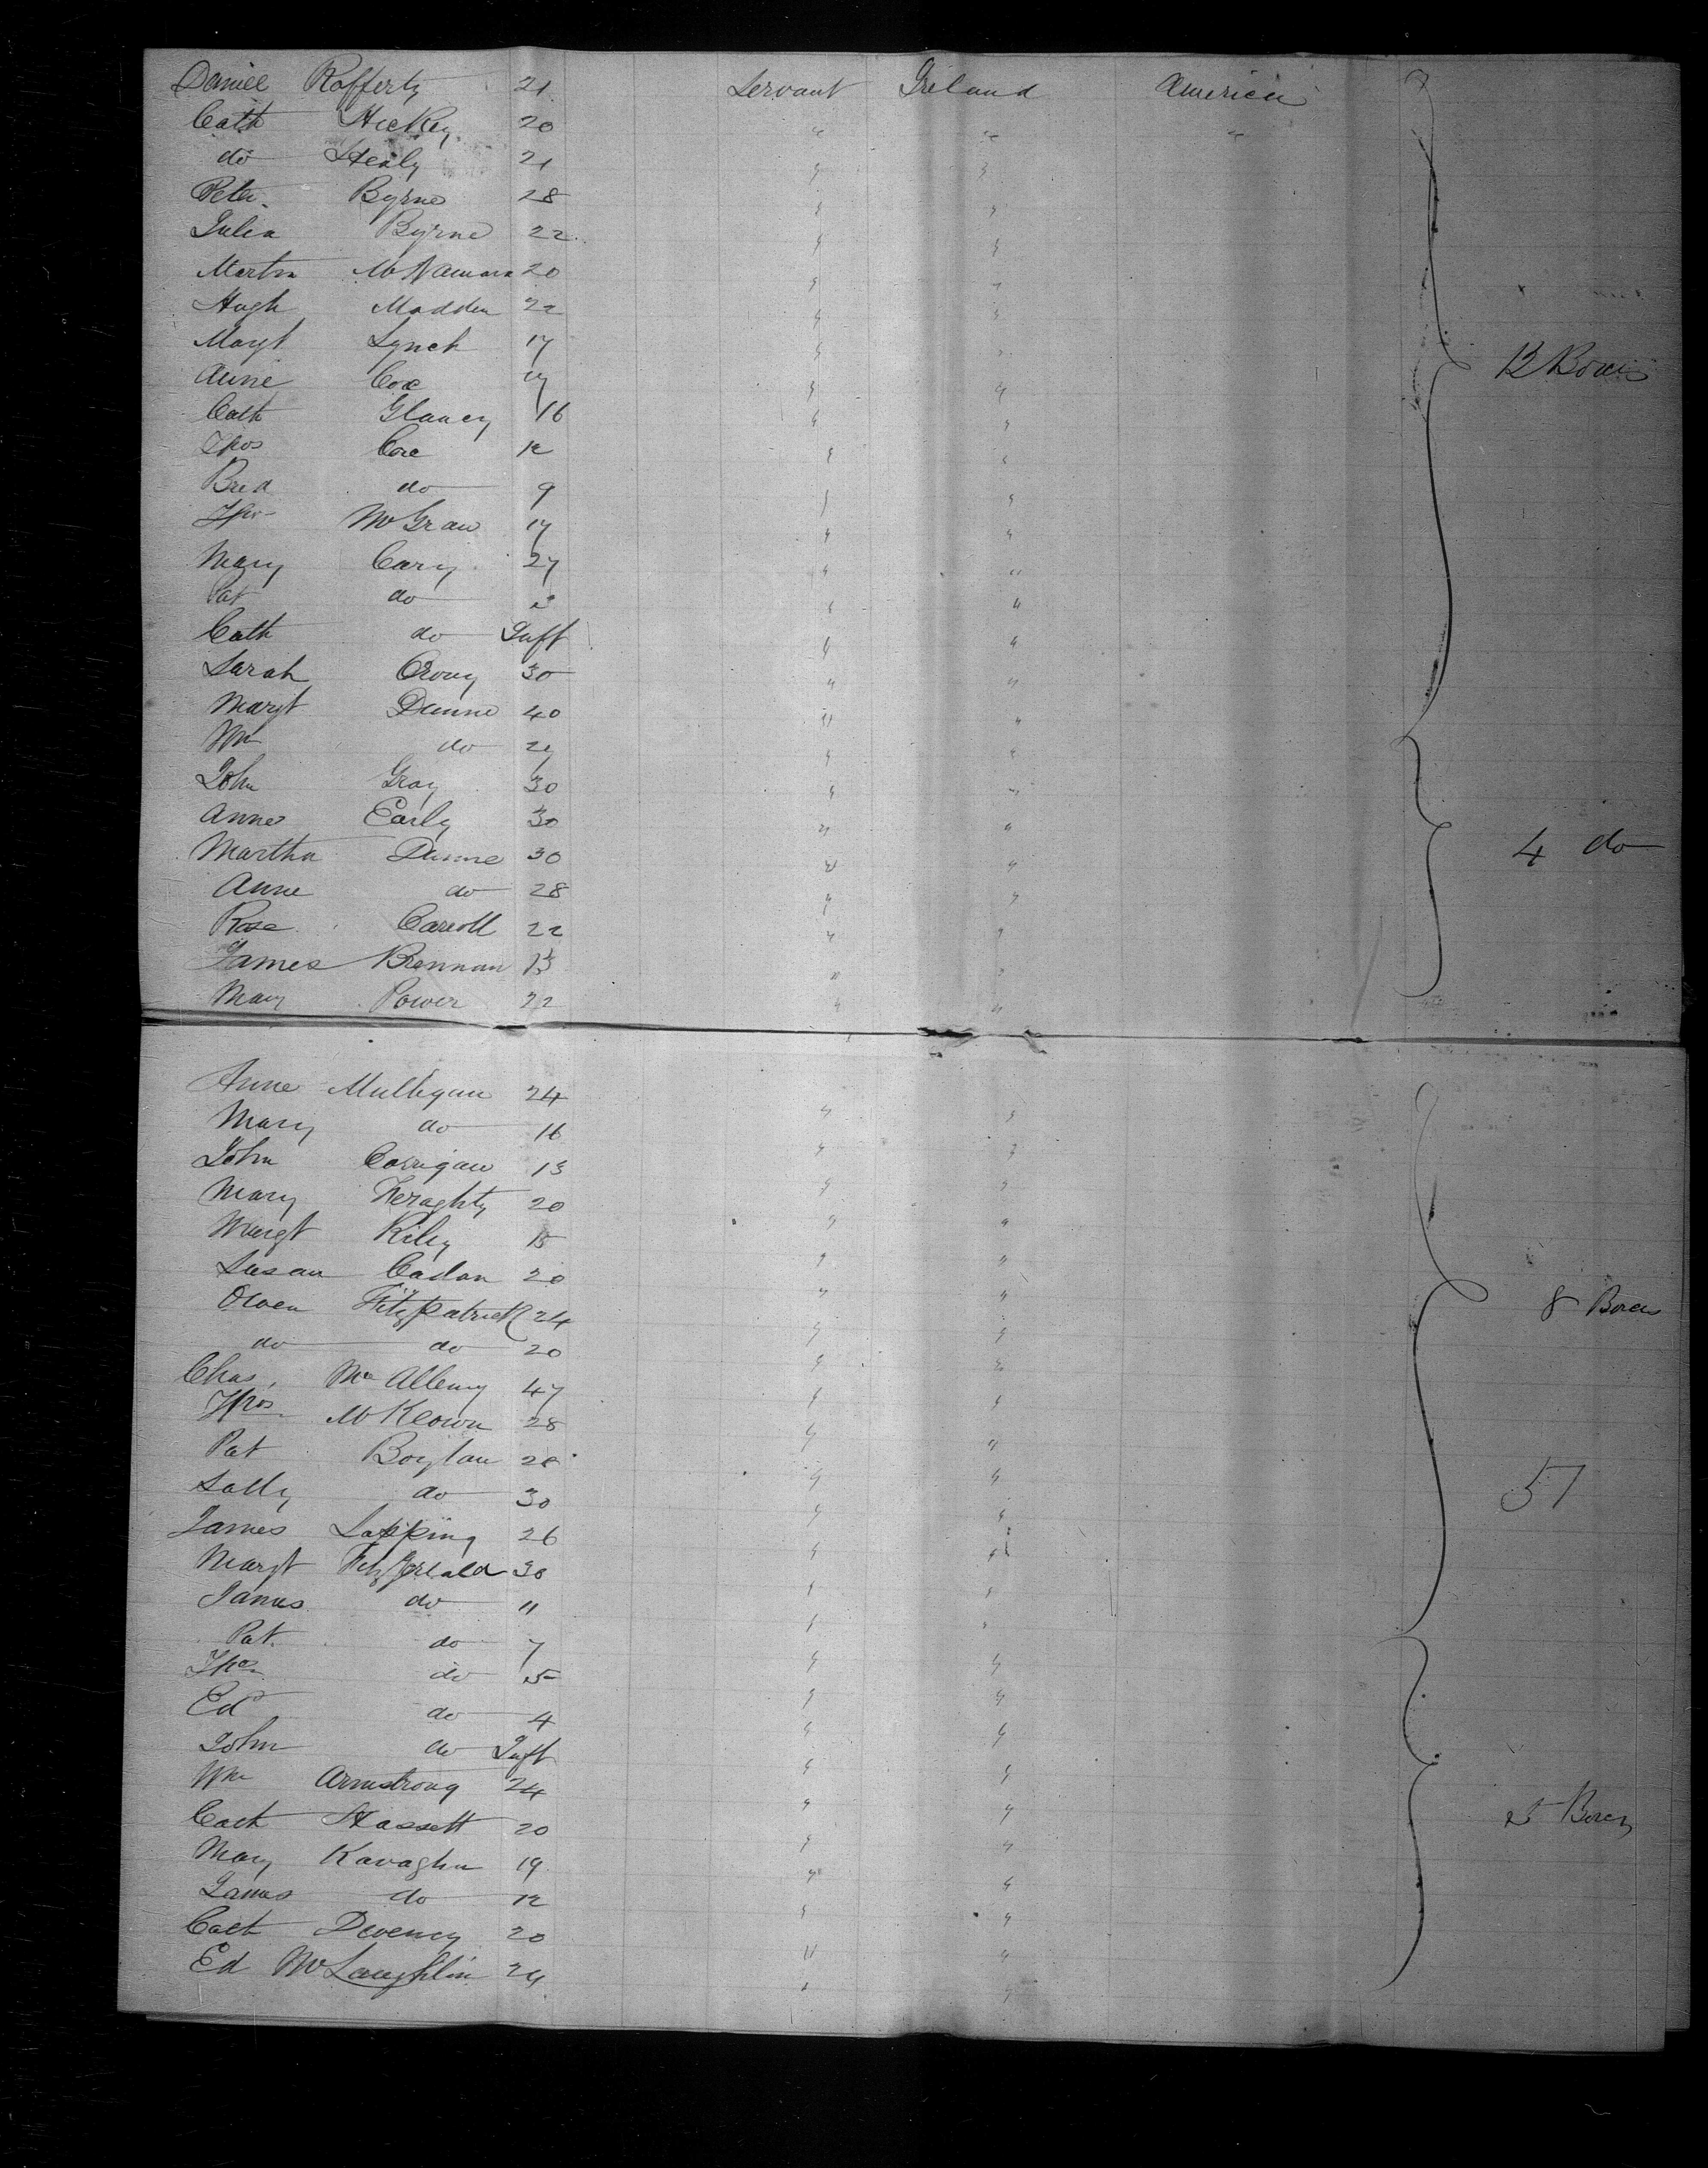 Daniel Rafferty 21 Servant Ireland America
Cath Hickey 20 " " "
do Healy 21 " "
Peter Byrne 28 " "
Julia Byrne 22 " "
Martin McNamara 20 " "
Hugh Madden 22 " "
Margt Lynch 17 " "
Anne Cox 17 " " 12 Boxes
Cath Glancy 16 " "
Thos Cox 12 " "
Brid do 9 " "
Thos McGraw 17 " "
Mary Cary 27 " "
Pat do 3 " "
Cath do Inft " "
Sarah 30 " "
Margt Dunne 40 " "
Wm do 27 " "
John Gray 30 " "
Anne Early 30 " "
Martha Dunne 30 " " 4 do
Anne do 28 " "
Rose Carroll 22 " "
James Brennan 13 " "
Mary Power 22 " "
Anne Mulligan 24 " "
Mary do 16 " "
John Corrigan 13 " "
Mary Heraghty 20 " "
Margt Kiley 15 " "
Susan Caslan 20 " "
Owen Fitzpatrick 24 " " 8 Boxes
do do 20 " "
Chas. 47 " "
Thos McKeown 28 " "
Pat Boylan 28 " "
Sally do 30 " " 51
James Lapping 26 " "
Margt FitzGerald 30 " "
James do 11 " "
Pat do 7 " "
Thos do 5 " "
Ed do 4 " "
John do Inft " "
Wm Armstrong 24 " "
Cath Hassett 20 " " 5 Boxes
Mary Kavaghn 19 " "
James do 12 " "
Cath Deveney 20 " "
Ed McLaughlin 24 " "